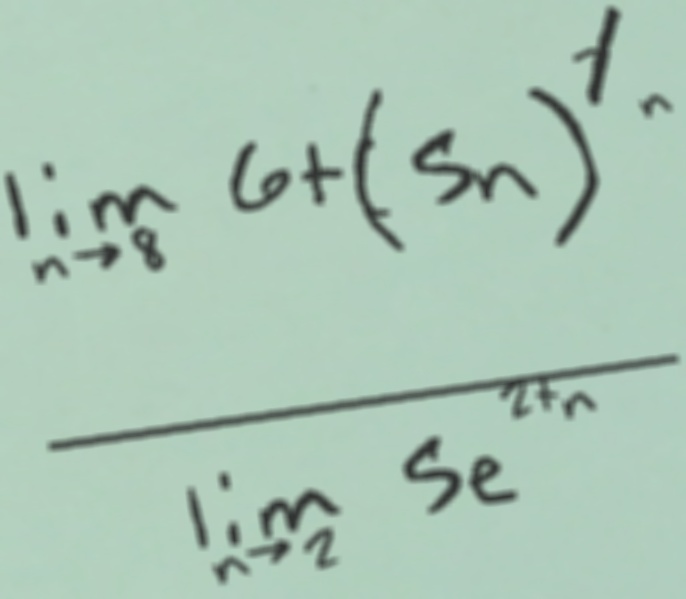 lim n→8 6+(5n)^1/n
lim n→2 5e^2+n